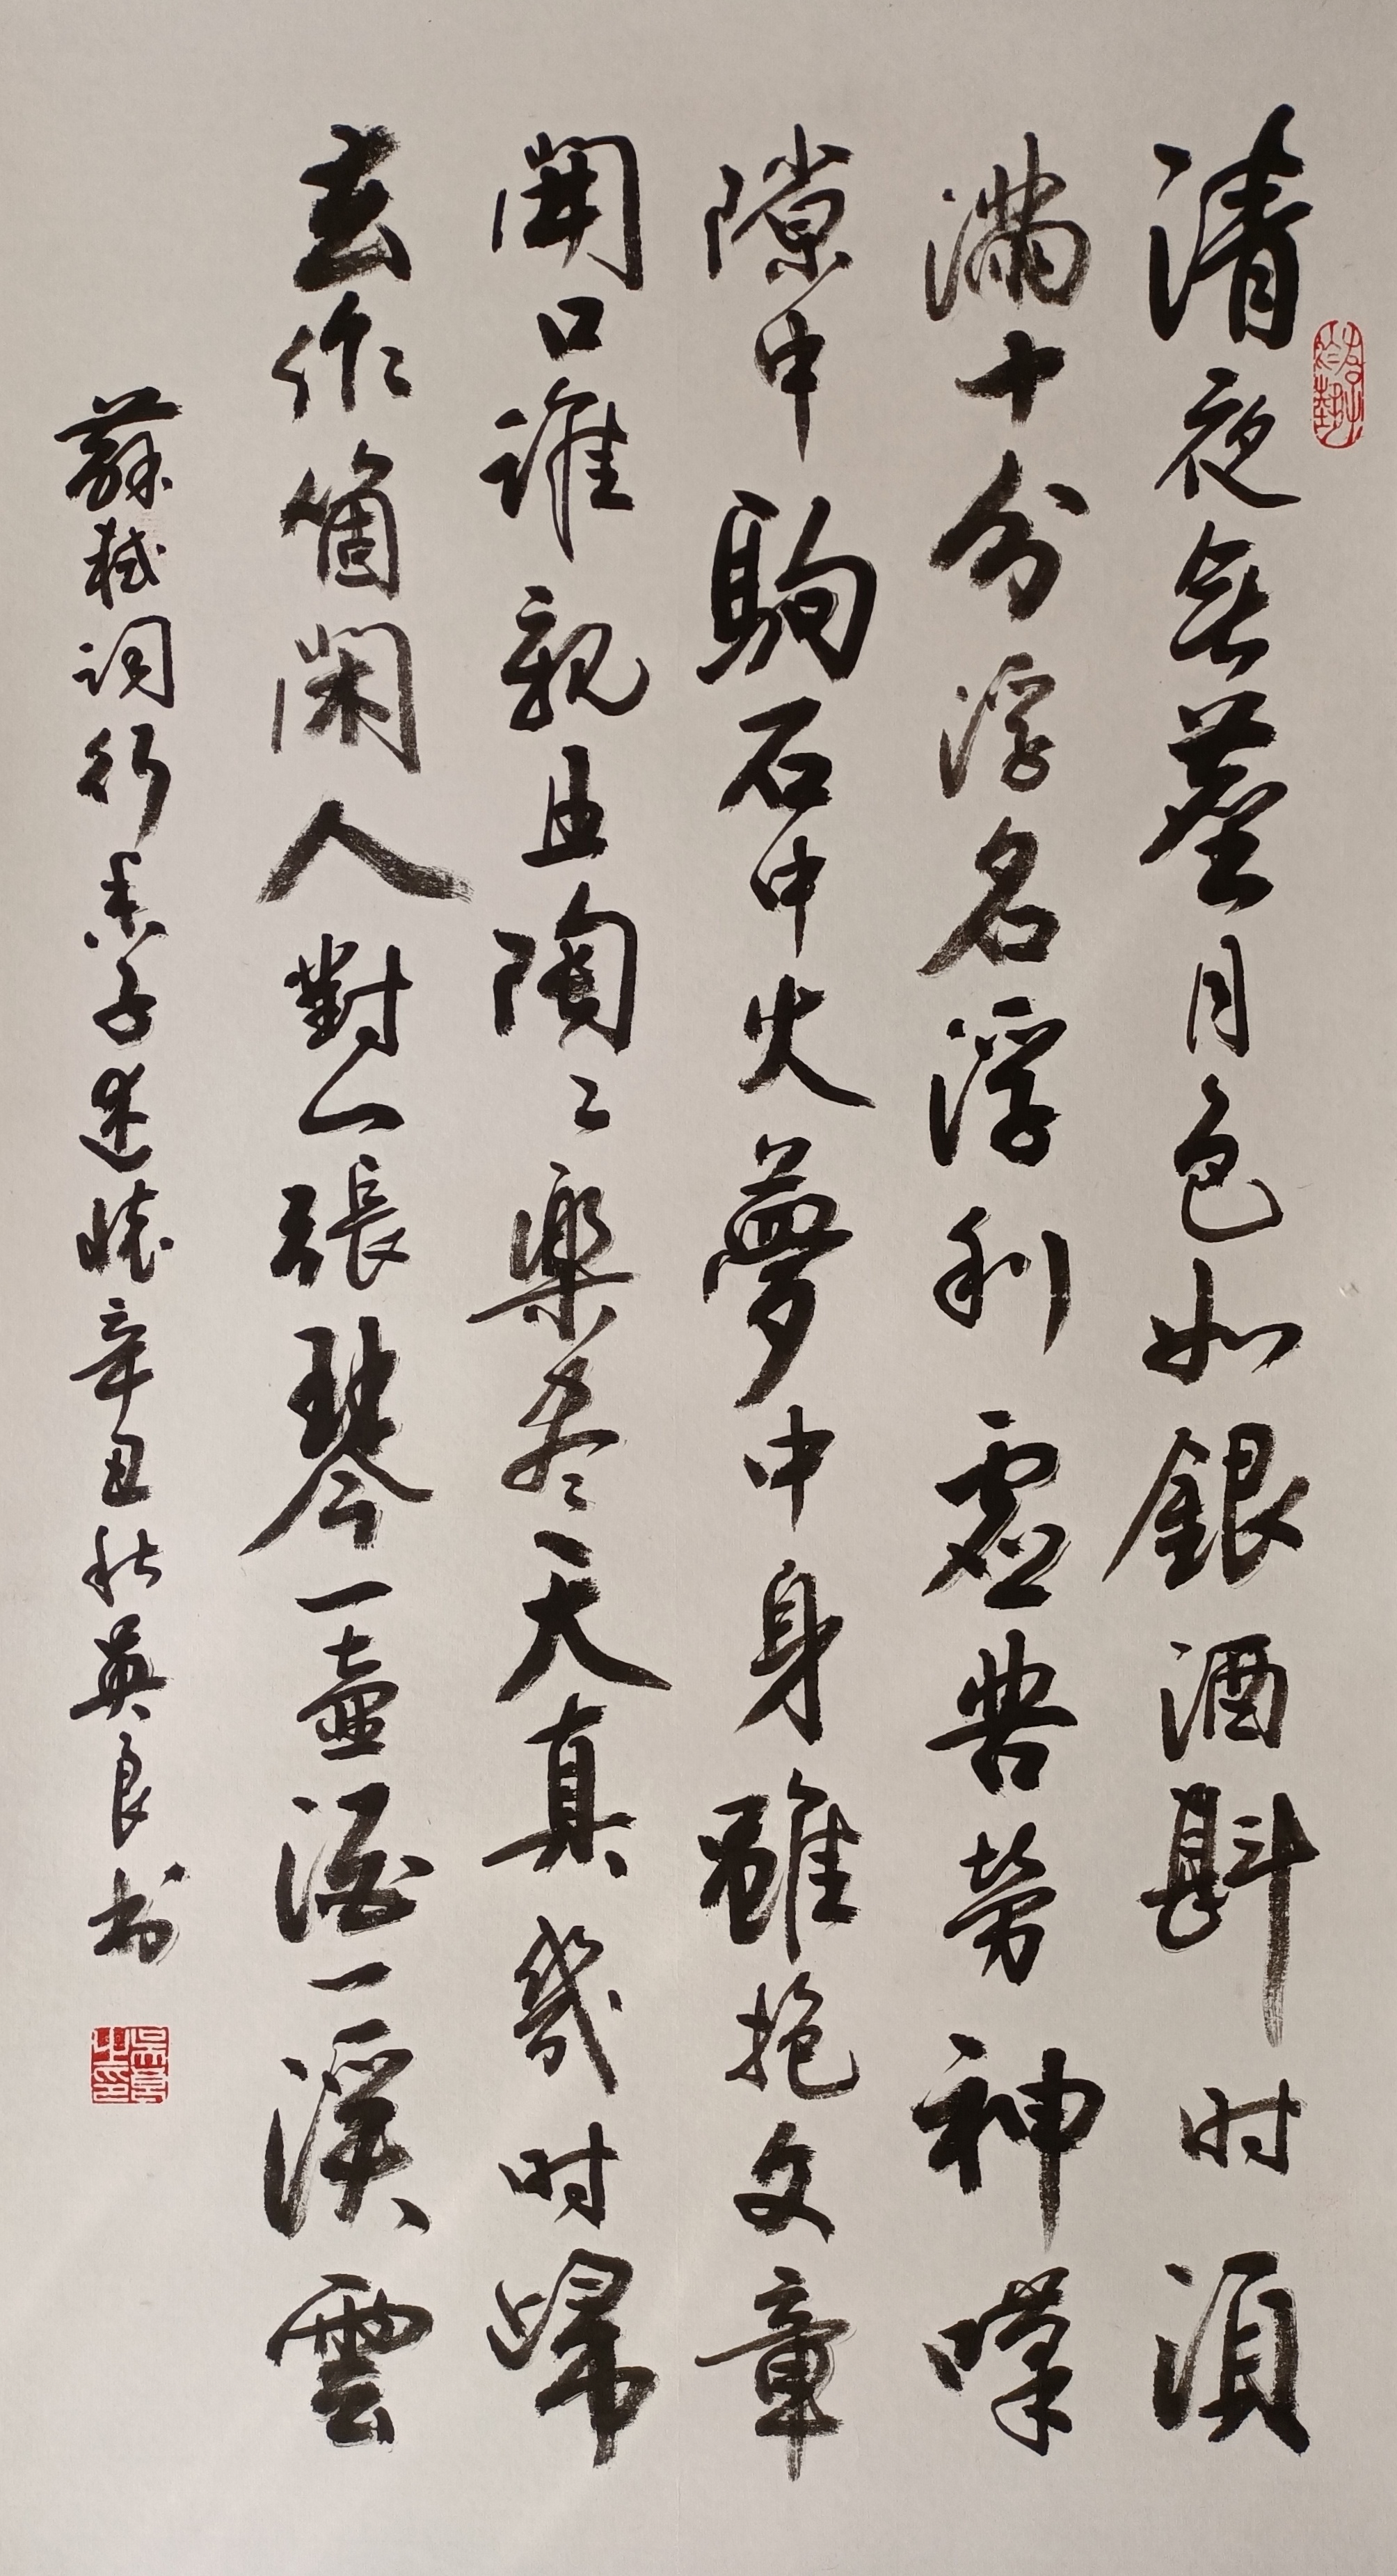 清夜無塵月色如銀酒斟时須
滿十分浮名浮利虛苦勞神嘆
隙中駒石中火夢中身雖抱文章
開口誰親且陶々樂盡天真幾时歸
去作箇閑人對一張琴一壺酒一溪雲
蘇軾詞行香子述懷辛丑秋英良书